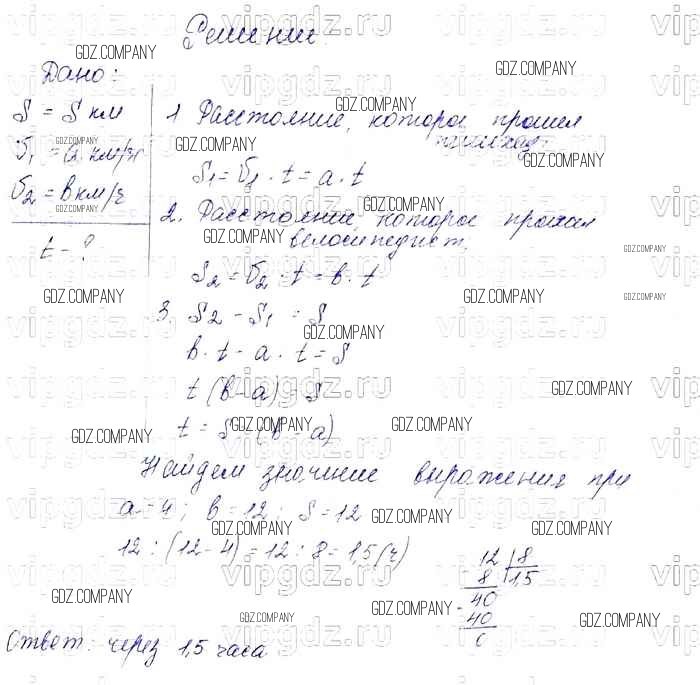 Решение
Дано:
S = S км
υ₁ = a км/ч
υ₂ = в км/ч
t - ?
1. Расстояние, которое прошел
пешеход.
S₁ = υ₁ · t = a · t
2. Расстояние, которое проехал
велосипедист,
S₂ = υ₂ · t = в · t
3. S₂ - S₁ = S
в · t - a · t = S
t (в - a) = S
t = S : (в - a)
Найдем значение выражения при
a = 4 ; в = 12 ; S = 12
12 : (12 - 4) = 12 : 8 = 1,5 (ч)
12 | 8
- 8 | 1,5
40
- 40
0
Ответ: через 1,5 часа
GDZ.COMPANY
vipgdz.ru